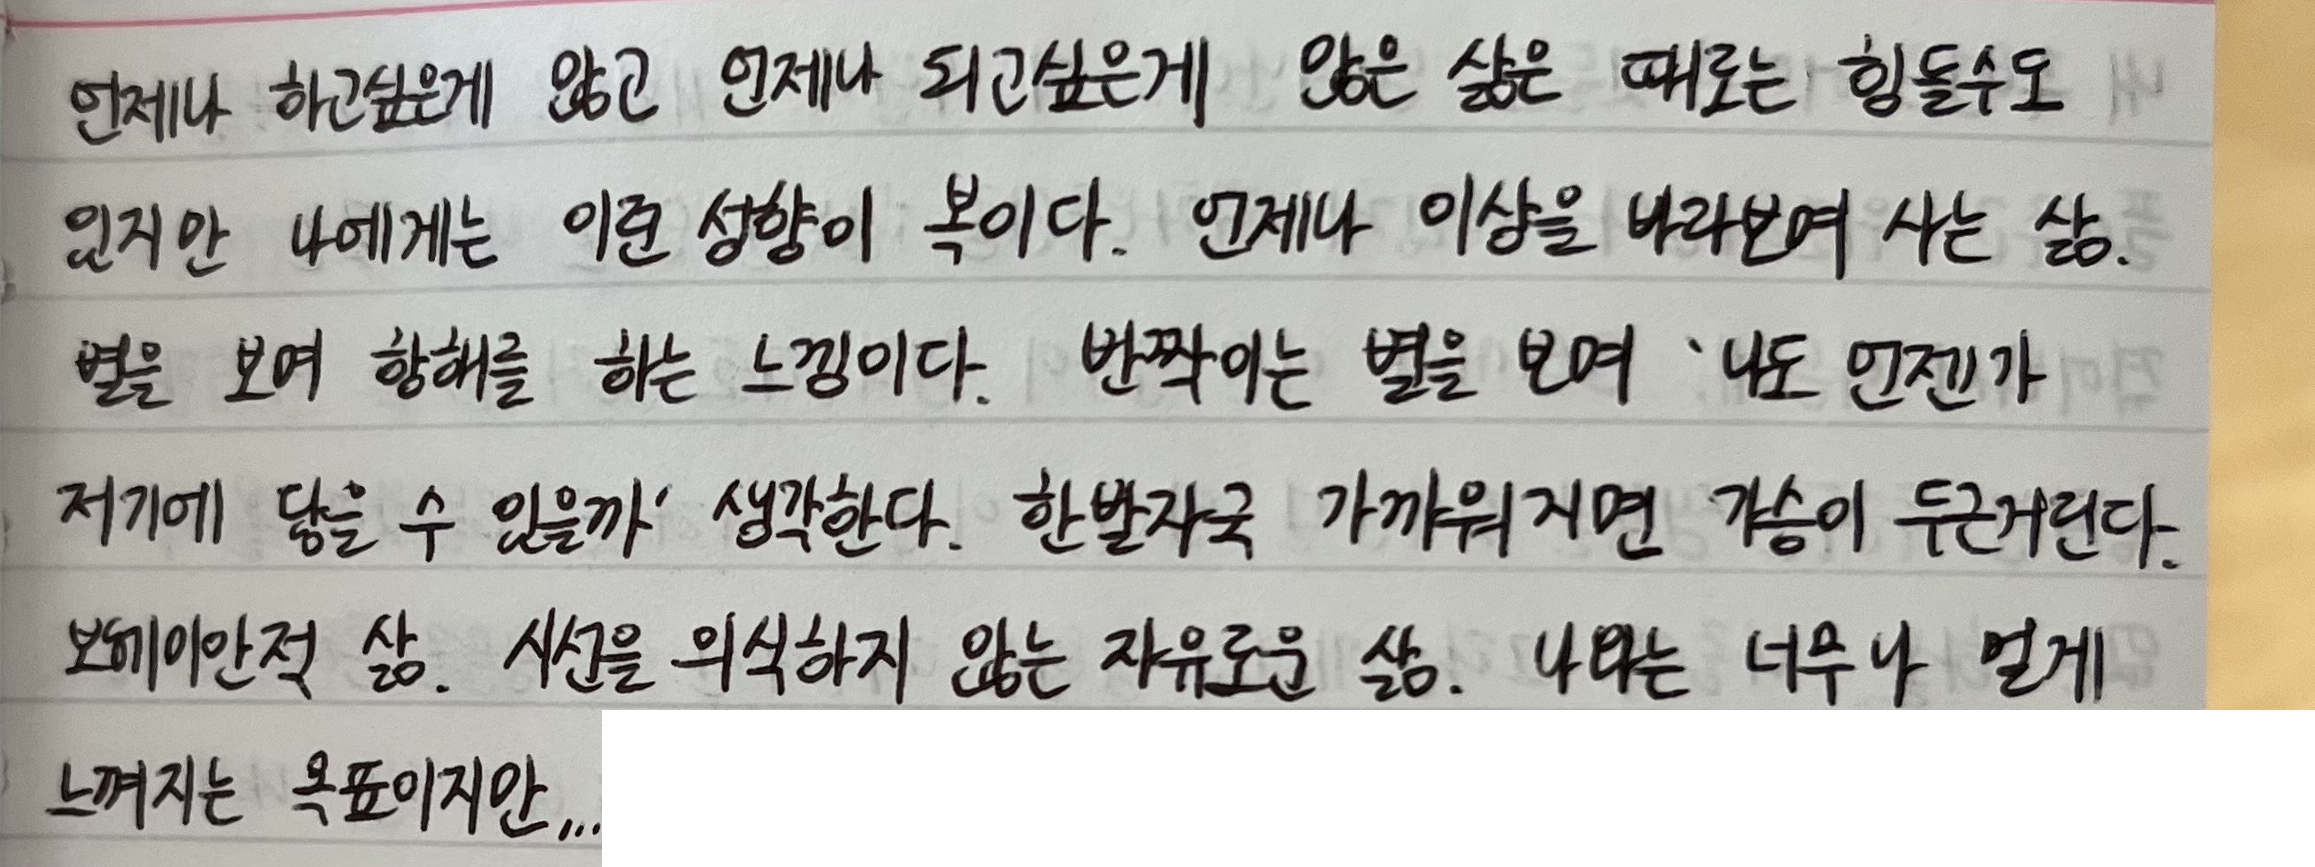 언제나 하고싶은게 많고 언제나 되고싶은게 많은 삶은 때로는 힘들수도
있지만 나에게는 이런 성향이 복이다. 언제나 이상을 바라보며 사는 삶.
별을 보며 항해를 하는 느낌이다. 반짝이는 별을 보며 '나도 언젠가
저기에 닿을 수 있을까' 생각한다. 한발자국 가까워지면 가슴이 두근거린다.
보헤미안적 삶. 시선을 의식하지 않는 자유로운 삶. 나와는 너무나 멀게
느껴지는 목표이지만...